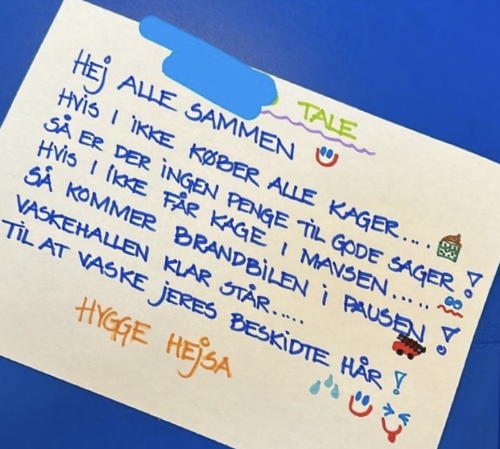 TALE
HEJ ALLE SAMMEN
HVIS I IKKE KØBER ALLE KAGER....
SÅ ER DER INGEN PENGE TIL GODE SAGER!
HVIS I IKKE FÅR KAGE I MAVSEN.....
SÅ KOMMER BRANDBILEN I PAUSEN!
VASKEHALLEN KLAR STÅR.....
TIL AT VASKE JERES BESKIDTE HÅR!
HYGGE HEJSA